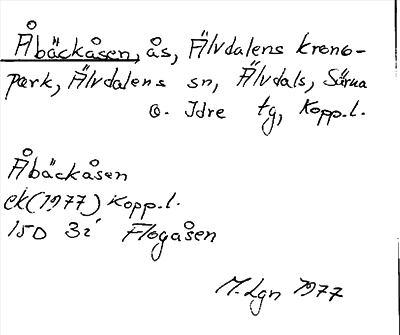 Åbäckåsen, ås, Älvdalens krono-
park, Älvdalens sn, Älvdals, Särna
o. Idre tg, Kopp.l.
Åbäckåsen
ek(1977) Kopp.l.
15D 3i Flogåsen
M. Lgn 1977